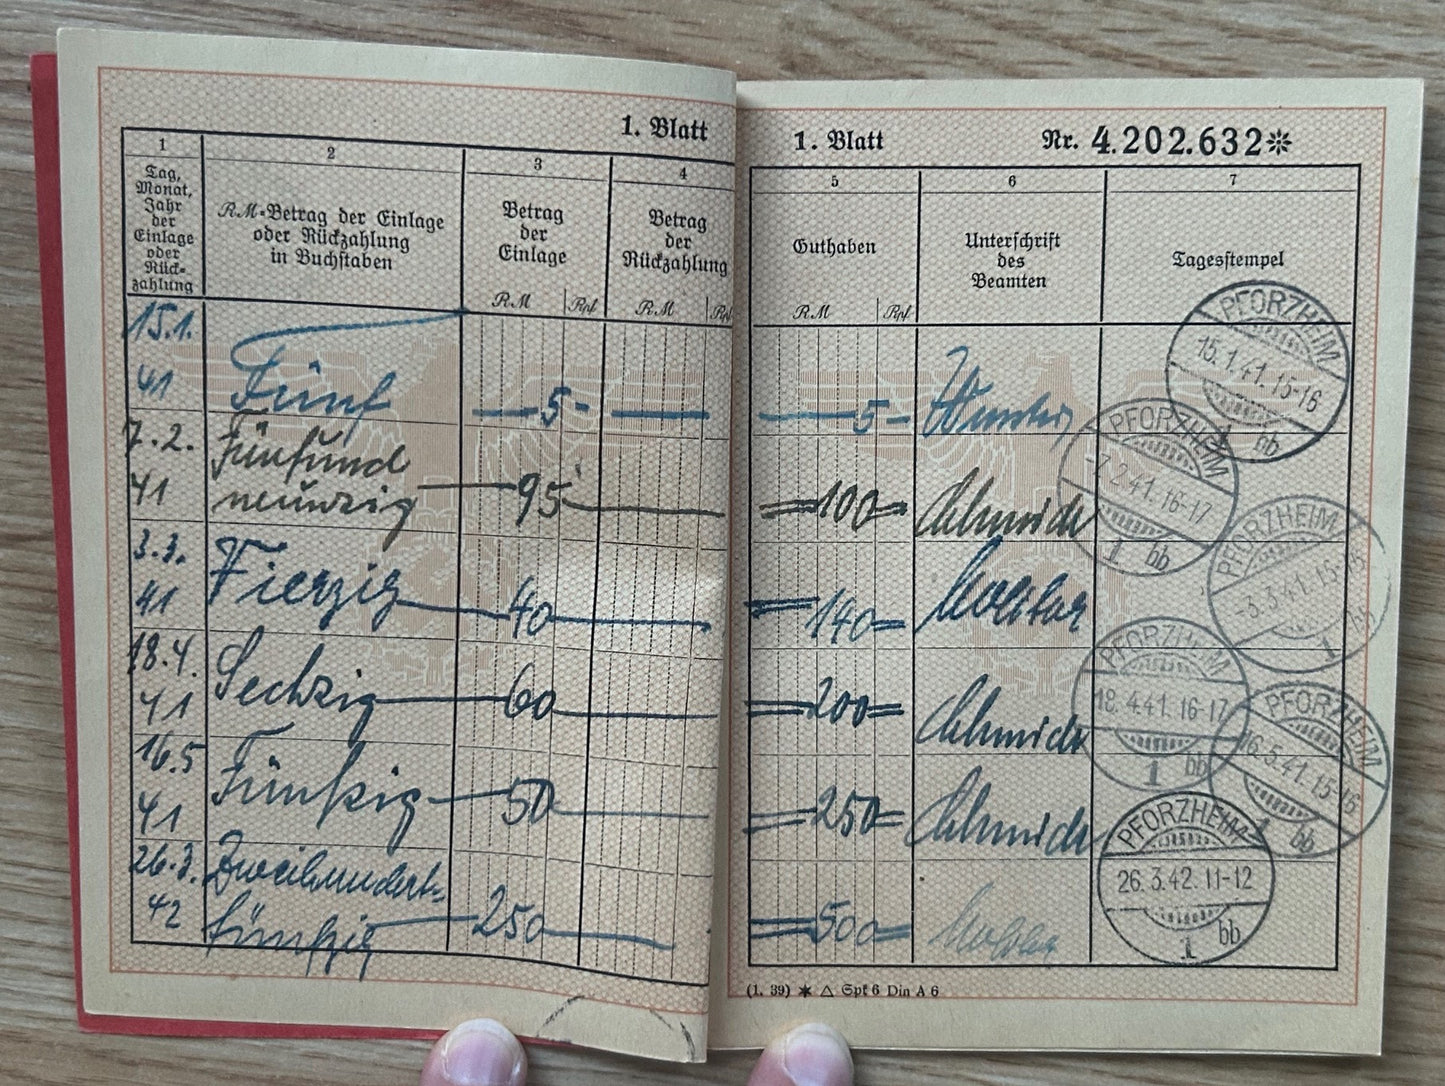 1. Blatt
1
2
3
4
Tag,
Monat,
Jahr
der
Einlage
oder
Rück-
zahlung
RM-Betrag der Einlage
oder Rückzahlung
in Buchstaben
Betrag
der
Einlage
Betrag
der
Rückzahlung
RM Rpf RM Rpf
15.1.
41
Fünf
5-
7.2.
41
Fünfund
neunzig
95
3.3.
41
Vierzig
40
18.4.
41
Sechzig
60
16.5
41
Fünfzig
50
26.3.
42
Zweihundert-
fünfzig
250
1. Blatt Nr. 4.202.632*
5
6
7
Guthaben
Unterschrift
des
Beamten
Tagesstempel
RM Rpf
5-
PFORZHEIM
15.1.41.15-16
1 bb
=100=
PFORZHEIM
-7.2.41.16-17
1 bb
=140=
PFORZHEIM
-3.3.41.15-16
1 bb
=200=
PFORZHEIM
18.4.41.16-17
1 bb
=250=
PFORZHEIM
16.5.41.15-16
1 bb
=500=
PFORZHEIM
26.3.42.11-12
1 bb
(1. 39) * △ Spk 6 Din A 6